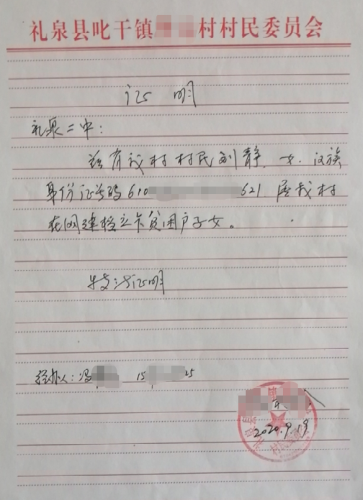 礼泉县叱干镇 村村民委员会
证明
礼泉二中:
兹有我村村民刘静,女,汉族
身份证号码610 621 属我村
在网建档立卡贫困户子女。
特此证明
经办人:冯 15 25
2020.9.19